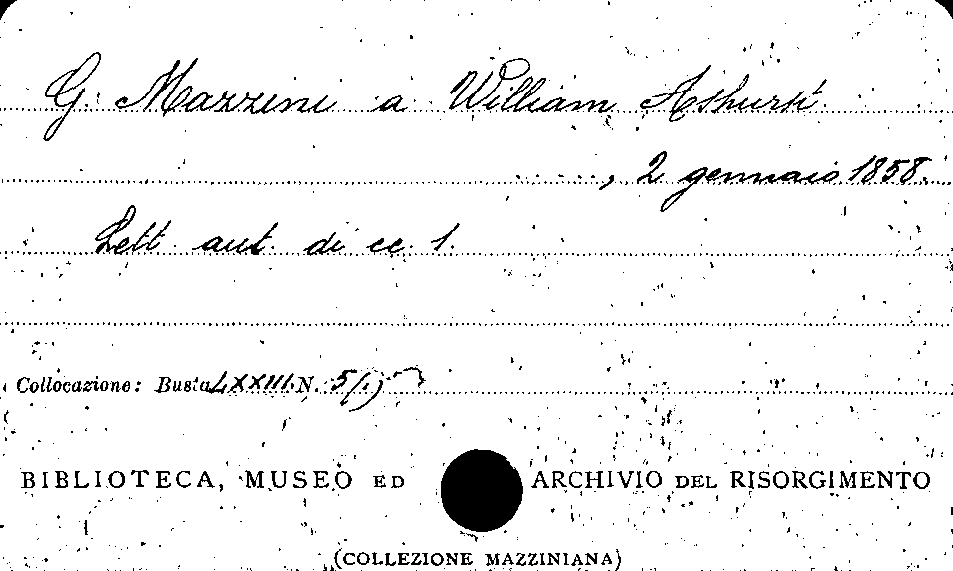 G. Mazzini a William Ashurst
......, 2 gennaio 1858.
Lett. aut. di cc. 1.
Collocazione: Busta LXXIII N. 5(1)
BIBLIOTECA, MUSEO ED ARCHIVIO DEL RISORGIMENTO
(COLLEZIONE MAZZINIANA)